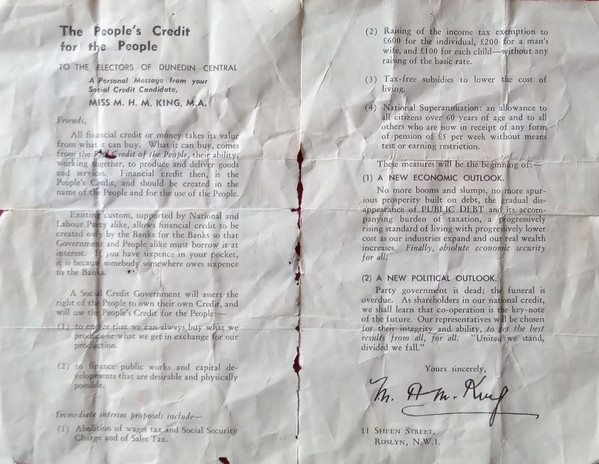 The People's Credit
for the People
TO THE ELECTORS OF DUNEDIN CENTRAL
A Personal Message from your
Social Credit Candidate,
MISS M. H. M. KING, M.A.
Friends,
All financial credit or money takes its value
from what it can buy. What it can buy, comes
from the Real Credit of the People, their ability,
working together, to produce and deliver goods
and services. Financial credit then, is the
People's Credit, and should be created in the
name of the People and for the use of the People.
Existing customs, supported by National and
Labour Party alike, allows financial credit to be
created only by the Banks for the Banks so that
Government and People alike must borrow it at
interest. If you have sixpence in your pocket,
it is because somebody somewhere owes sixpence
to the Banks.
A Social Credit Government will assert the
right of the People to own their own Credit, and
will use the People's Credit for the People:—
(1) to ensure that we can always buy what we
produce or what we get in exchange for our
production.
(2) to finance public works and capital de-
velopments that are desirable and physically
possible.
Immediate interim proposals include—
(1) Abolition of wages tax and Social Security
Charge and of Sales Tax.
(2) Raising of the income tax exemption to
£600 for the individual, £200 for a man's
wife, and £100 for each child—without any
raising of the basic rate.
(3) Tax-free subsidies to lower the cost of
living.
(4) National Superannuation: an allowance to
all citizens over 60 years of age and to all
others who are now in receipt of any form
of pension of £5 per week without means
test or earning restriction.
These measures will be the beginning of:—
(1) A NEW ECONOMIC OUTLOOK.
No more booms and slumps, no more spur-
ious prosperity built on debt, the gradual dis-
appearance of PUBLIC DEBT and its accom-
panying burden of taxation, a progressively
rising standard of living with progressively lower
cost as our industries expand and our real wealth
increases. Finally, absolute economic security
for all.
(2) A NEW POLITICAL OUTLOOK.
Party government is dead; the funeral is
overdue. As shareholders in our national credit,
we shall learn that co-operation is the key-note
of the future. Our representatives will be chosen
for their integrity and ability, to get the best
results from all, for all. "United we stand,
divided we fall."
Yours sincerely,
M. H. M. King
11 Sheen Street,
Roslyn, N.W.1.